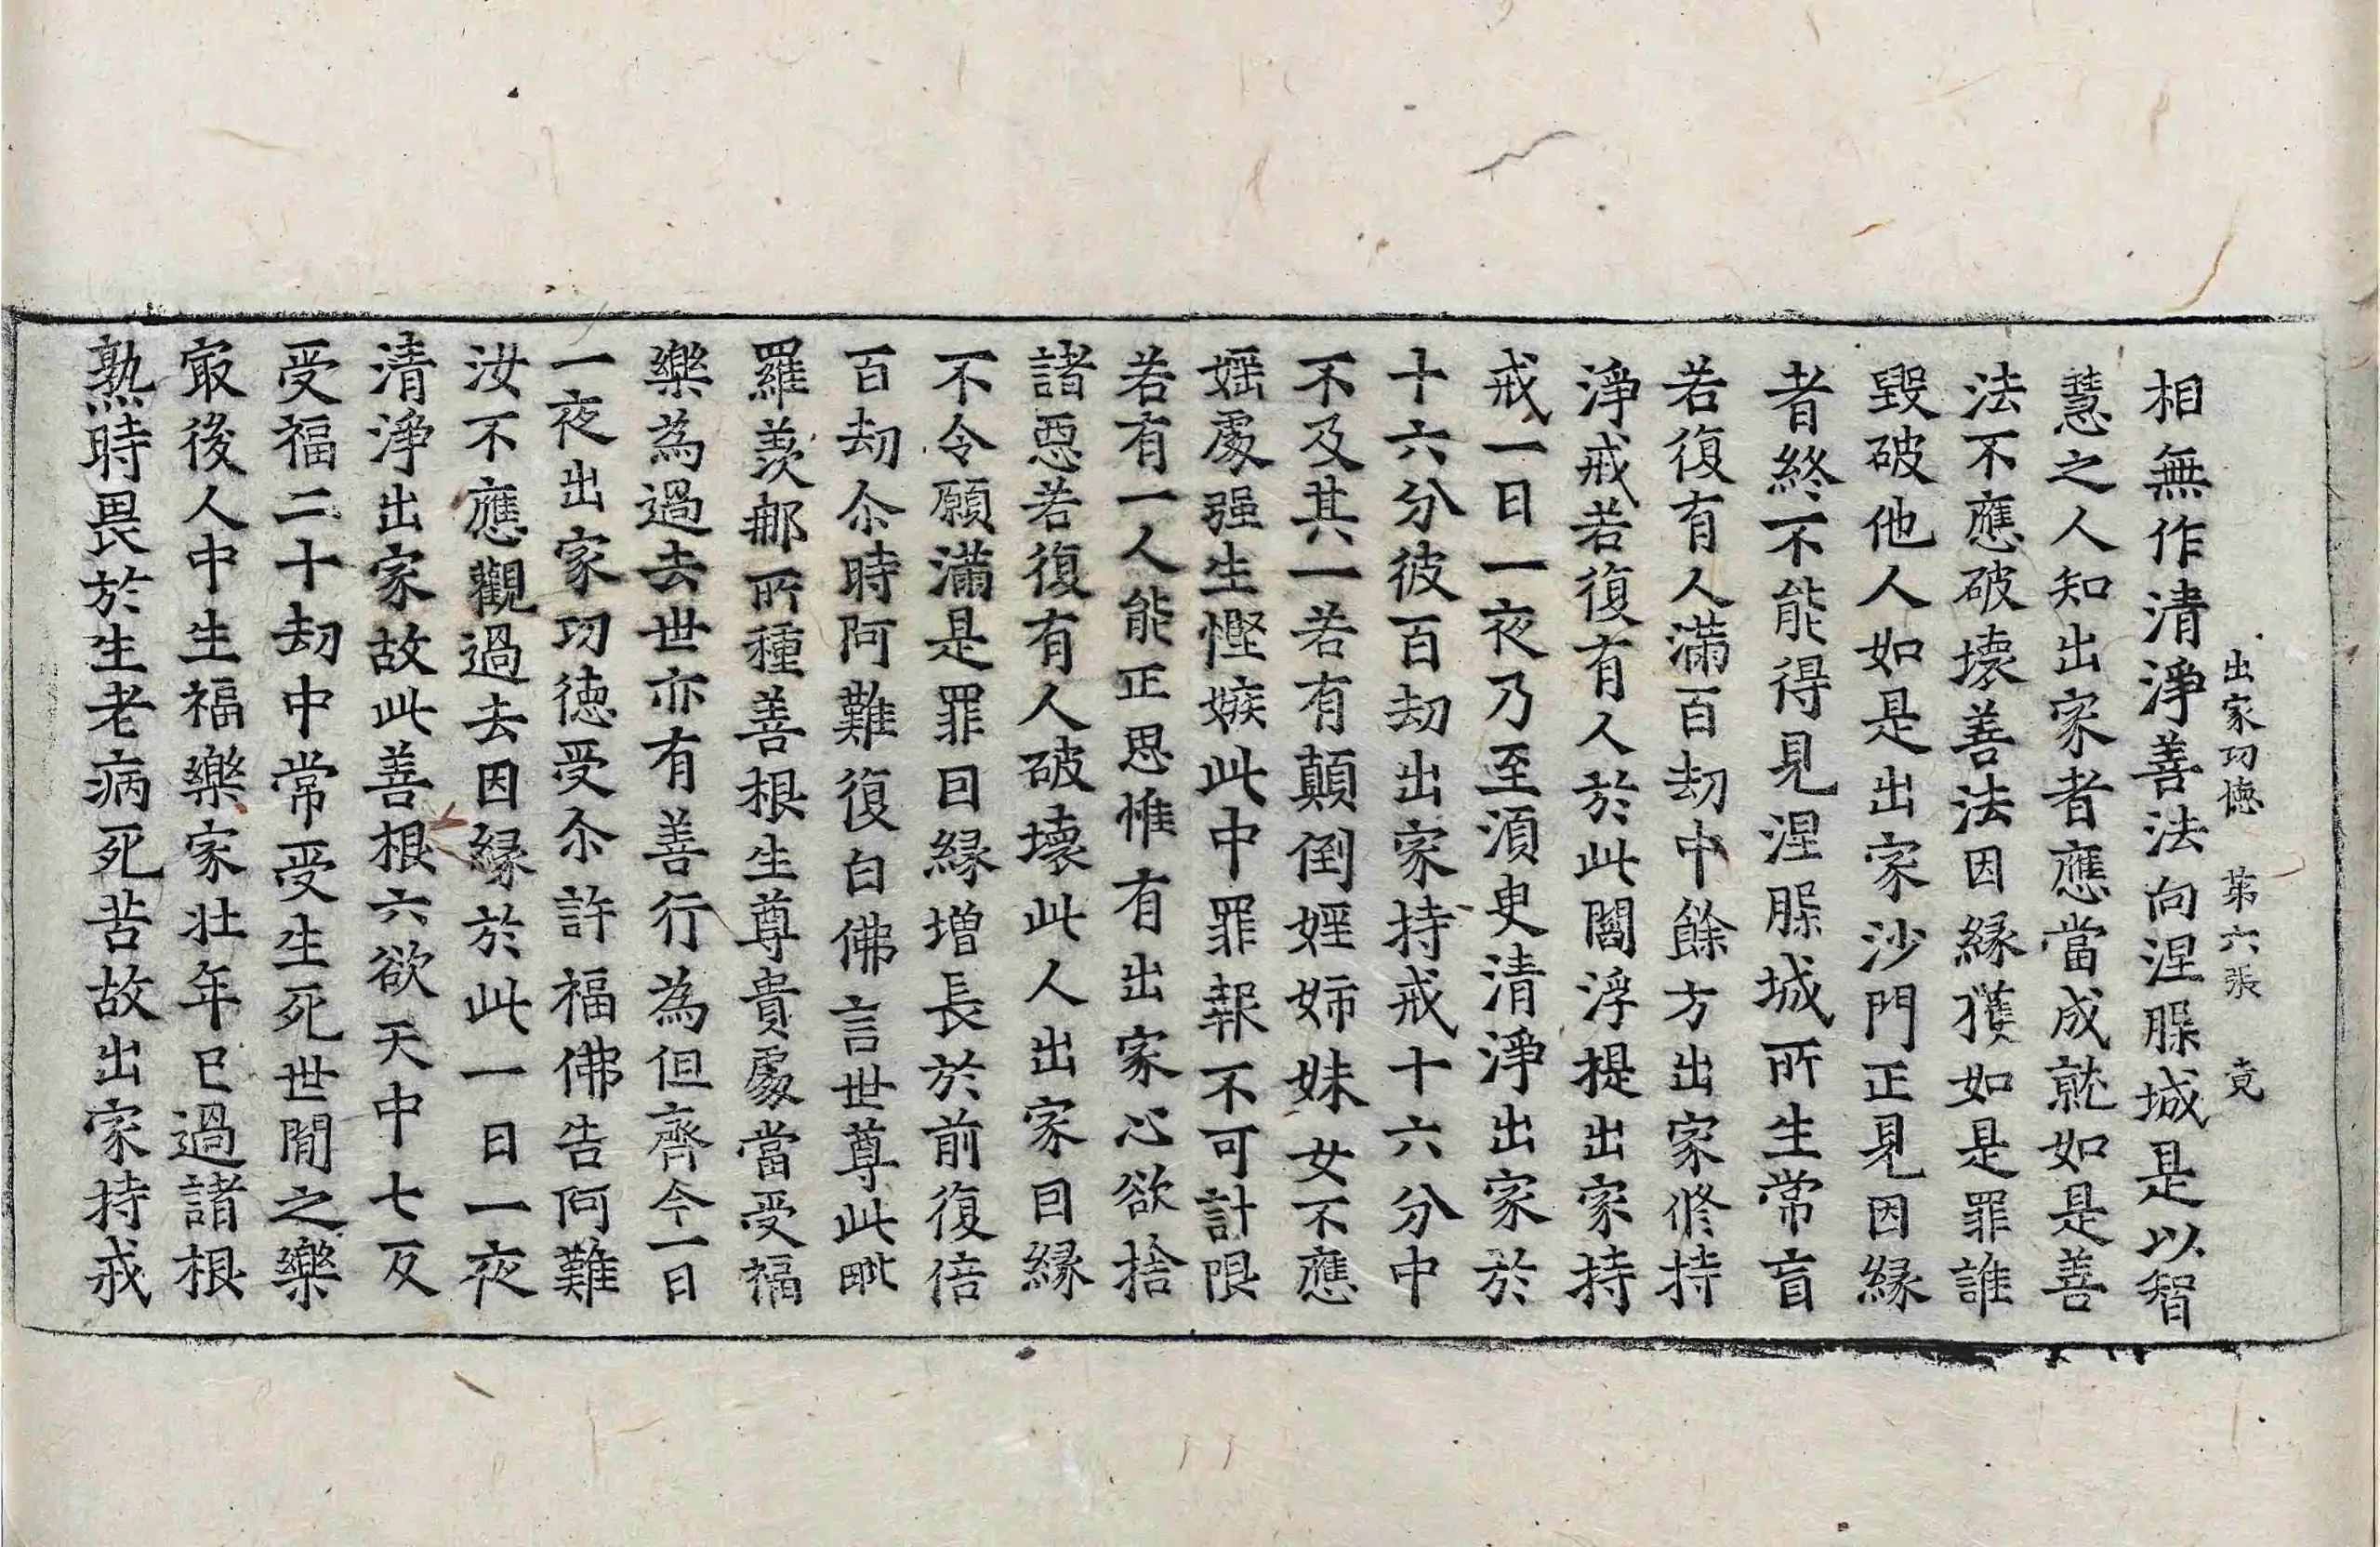 出家功徳　第六張　竟
相無作清淨善法向涅槃城是以智
慧之人知出家者應當成就如是善
法不應破壞善法因縁獲如是罪誰
毀破他人如是出家沙門正見因縁
者終不能得見涅槃城所生常盲
若復有人滿百劫中餘方出家修持
淨戒若復有人於此閻浮提出家持
戒一日一夜乃至須臾清淨出家於
十六分彼百劫出家持戒十六分中
不及其一若有顛倒婬姉妹女不應
婬處强生慳嫉此中罪報不可計限
若有一人能正思惟有出家心欲捨
諸惡若復有人破壞此人出家因縁
不令願滿是罪因縁增長於前復倍
百劫尒時阿難復白佛言世尊此毗
羅羨那所種善根生尊貴處當受福
樂為過去世亦有善行為但齊今一日
一夜出家功徳受尒許福佛告阿難
汝不應觀過去因縁於此一日一夜
清淨出家故此善根六欲天中七反
受福二十劫中常受生死世間之樂
㝡後人中生福樂家壯年已過諸根
熟時畏於生老病死苦故出家持戒